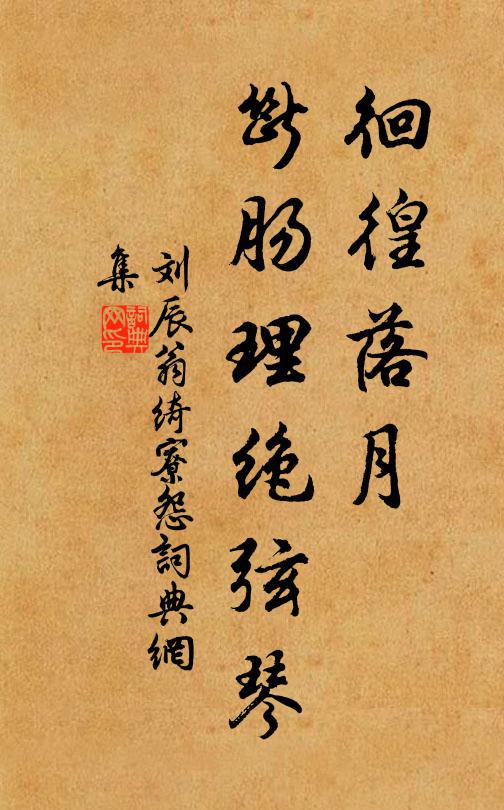 徊徨落月
断肠理绝弦琴
刘辰翁绮寮怨詞典網
集
詞典
网印